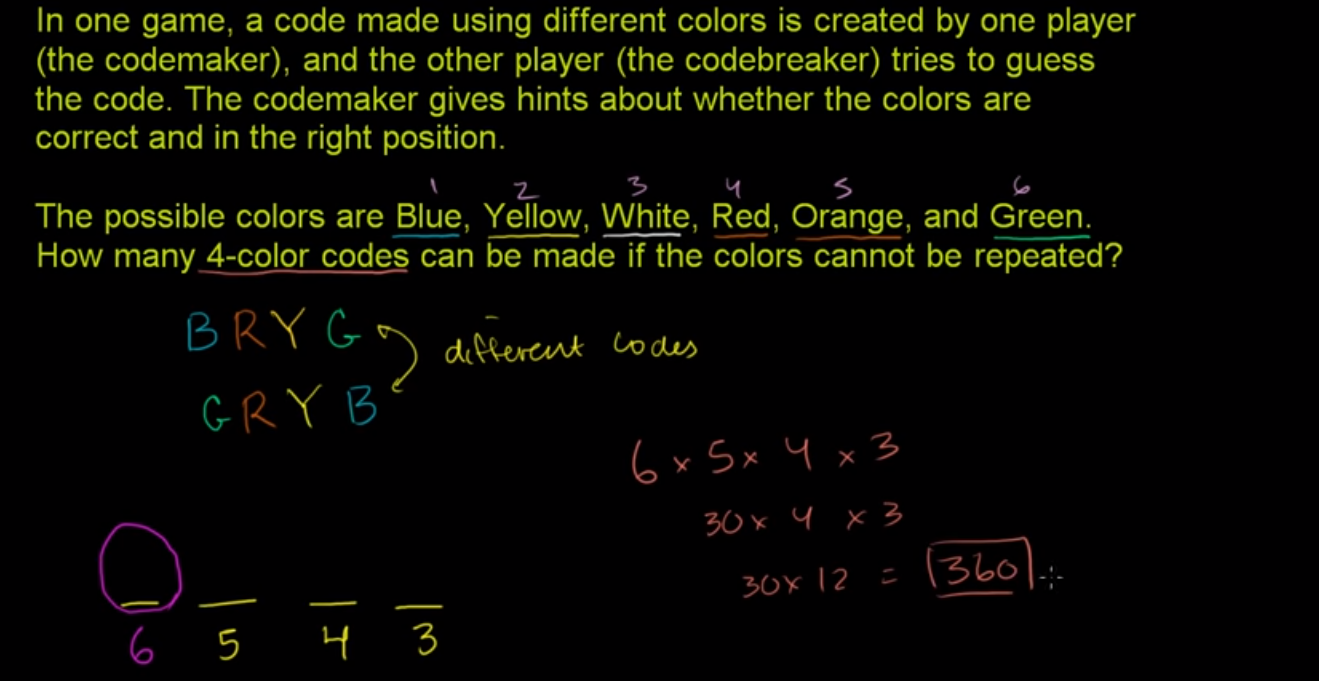 In one game, a code made using different colors is created by one player
(the codemaker), and the other player (the codebreaker) tries to guess
the code. The codemaker gives hints about whether the colors are
correct and in the right position.
1 2 3 4 5 6
The possible colors are Blue, Yellow, White, Red, Orange, and Green.
How many 4-color codes can be made if the colors cannot be repeated?
B R Y G
different codes
G R Y B
6 x 5 x 4 x 3
30 x 4 x 3
30 x 12 = 360
6 5 4 3